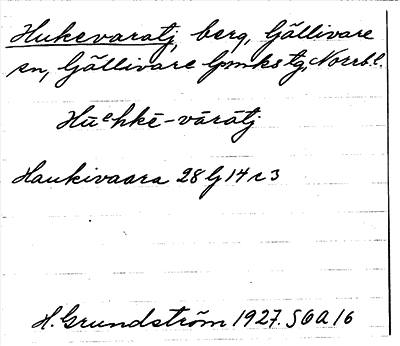 Hukevaratj, berg, Gällivare
sn, Gällivare lpmks tg, Norrb. l.
Hūᵉhkē-vārātj
Haukivaara 28 G 14 r 3
H. Grundström 1927. S6A16